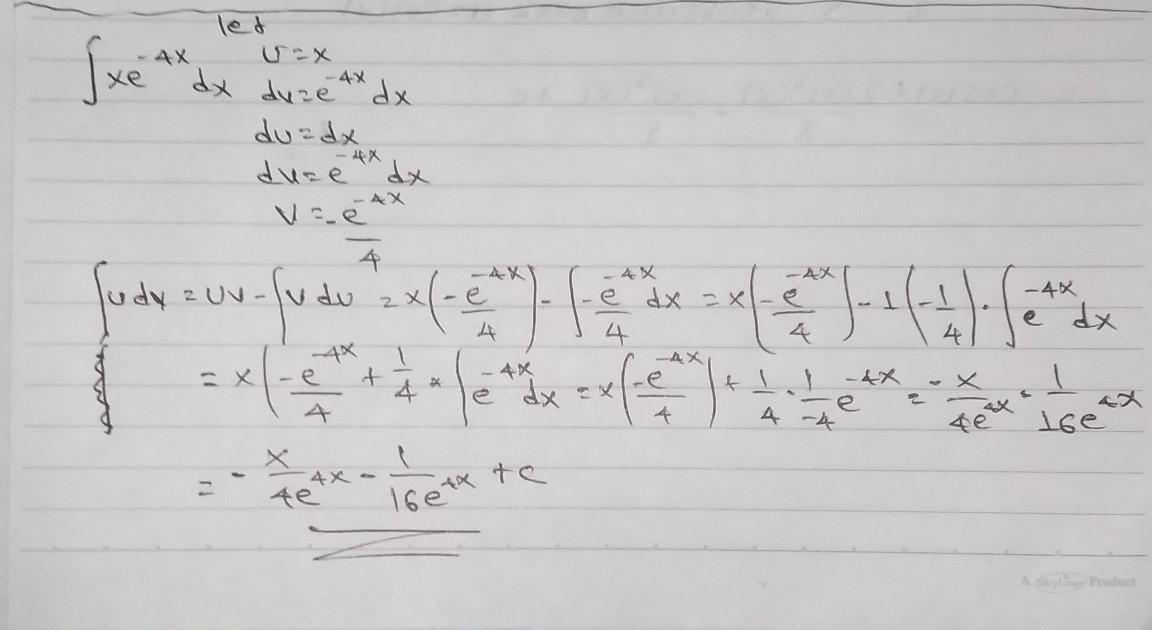 let
∫xe^(-4x) dx u=x
dv=e^(-4x) dx
du=dx
dv=e^(-4x) dx
v=-e^(-4x)/4
∫u dv = uv-∫v du = x(-e^(-4x)/4) - ∫-e^(-4x)/4 dx = x(-e^(-4x)/4) - 1(-1/4)·∫e^(-4x) dx
= x(-e^(-4x)/4 + 1/4 * ∫e^(-4x) dx = x(-e^(-4x)/4) + 1/4 · 1/-4 e^(-4x) = -x/4e^(4x) - 1/16e^(4x)
= -x/4e^(4x) - 1/16e^(4x) +c
A SkyLine Product